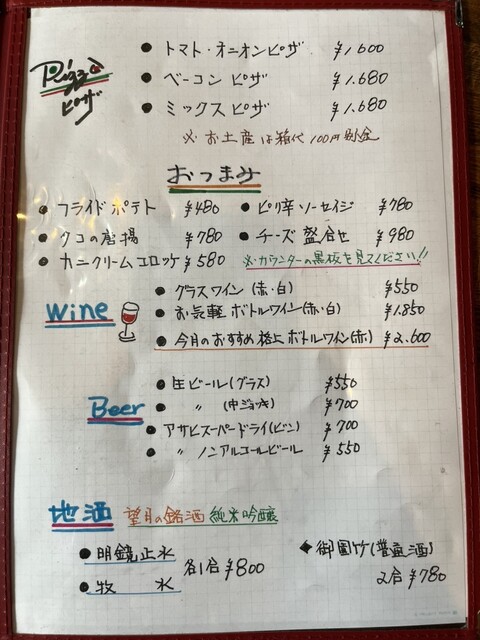 Pizza
ピザ
● トマト・オニオンピザ ¥1,600
● ベーコン ピザ ¥1,680
● ミックス ピザ ¥1,680
※ お土産は箱代100円別金
おつまみ
● フライドポテト ¥480
● ピリ辛ソーセイジ ¥780
● タコの唐揚 ¥780
● チーズ盛合せ ¥980
● カニクリームコロッケ ¥580
※カウンターの黒板を見てください!!
wine
● グラスワイン(赤・白) ¥550
● お気軽ボトルワイン(赤・白) ¥1,850
● 今月のおすすめ格上ボトルワイン(赤) ¥2,600
Beer
● 生ビール(グラス) ¥550
● 〃 (中ジョッキ) ¥700
● アサヒスーパードライ(ビン) ¥700
● 〃 ノンアルコールビール ¥550
地酒 望月の銘酒 純米吟醸
● 明鏡止水
● 牧 水
各1合 ¥800
◆ 御園竹(普通酒)
2合 ¥780